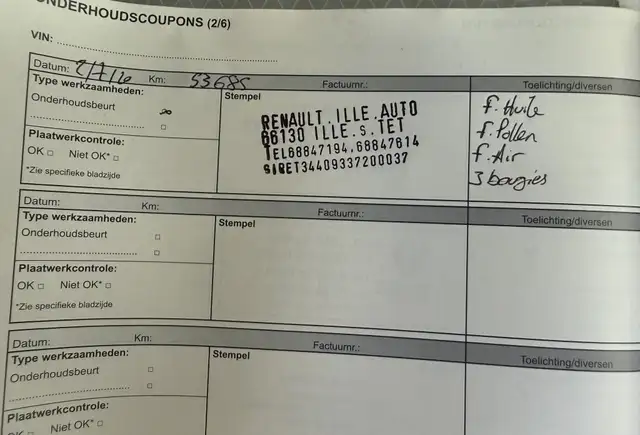 ONDERHOUDSCOUPONS (2/6)
VIN: ........................................
Datum: 2/7/20 Km: 53685 Factuurnr.: Toelichting/diversen
Type werkzaamheden:
Onderhoudsbeurt
............................ □
Plaatwerkcontrole:
OK □ Niet OK* □
*Zie specifieke bladzijde
Stempel
RENAULT.ILLE.AUTO
66130 ILLE.s.TET
TEL68847194.68847614
SIRET34409337200037
f. Huile
f. Pollen
f. Air
3 bougies
Datum: Km: Factuurnr.: Toelichting/diversen
Type werkzaamheden:
Onderhoudsbeurt □
............................ □
Plaatwerkcontrole:
OK □ Niet OK* □
*Zie specifieke bladzijde
Stempel
Datum: Km: Factuurnr.: Toelichting/diversen
Type werkzaamheden:
Onderhoudsbeurt □
............................ □
Plaatwerkcontrole:
OK □ Niet OK* □
Stempel